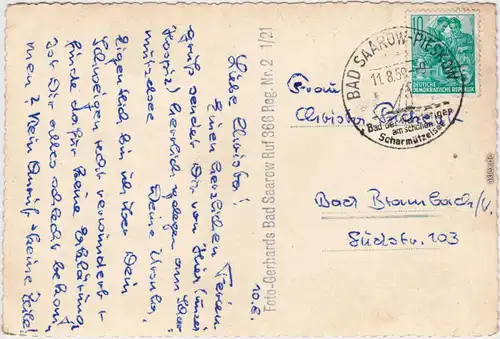 10.8.
Liebe Christa!
Einen herzlichen Ferien
gruß sendet Dir von hier (unser
Hospiz) herrlich gelegen am Schar
mützelsee Deine Ursula.
Eigentlich bin ich über Dein
Schweigen sehr verwundert +
finde dafür keine Erklärung
Ist Dir alles schlecht bekom
men? Kein Anruf + keine Zeile!
Foto-Gerhards Bad Saarow Ruf 366 Reg. Nr. 2 1/21
BAD SAAROW-PIESKOW
11.8.59
Bad der Werktätigen
am schönen
Scharmützelsee
10
DEUTSCHE
DEMOKRATISCHE REPUBLIK
Frau
Christa
Bad Brambach/V.
Südstr. 103